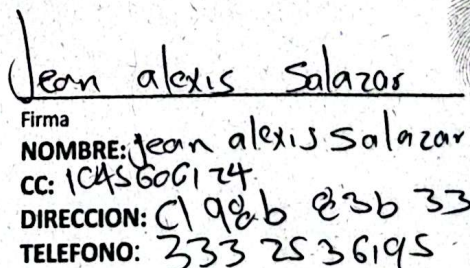 Jean alexis Salazar
Firma
NOMBRE: Jean alexis Salazar
CC:
DIRECCION: Cl 98b 83b 33
TELEFONO: 333 2536195